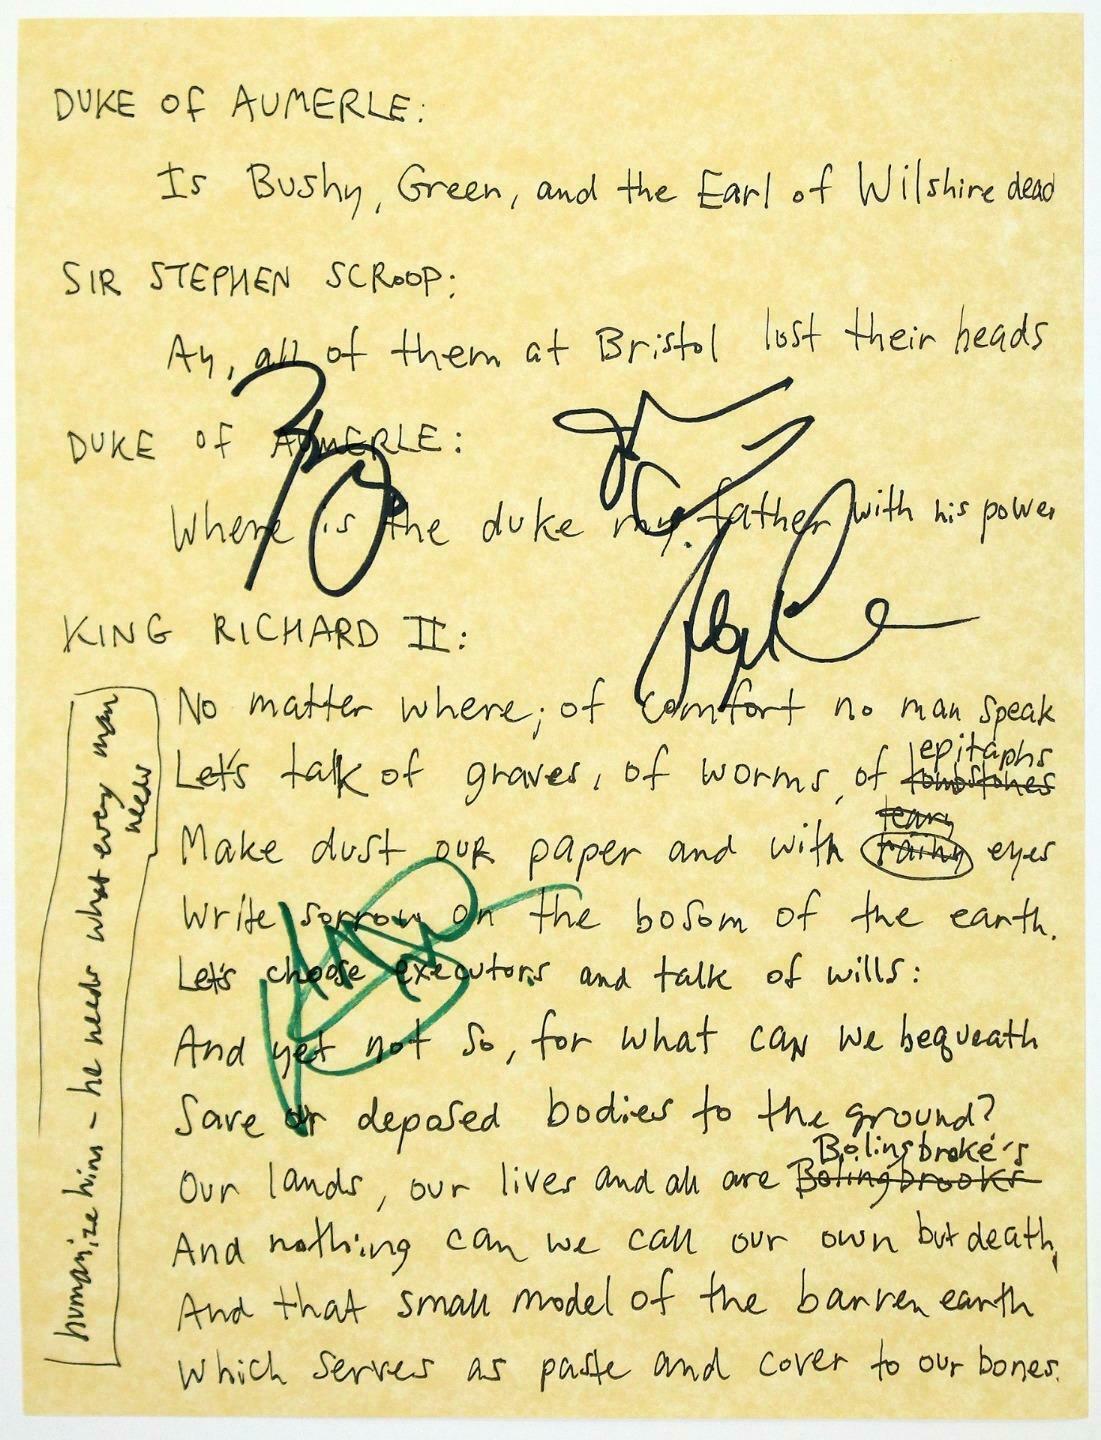 DUKE OF AUMERLE:
Is Bushy, Green, and the Earl of Wilshire dead
SIR STEPHEN SCROOP:
Ay, all of them at Bristol lost their heads
DUKE OF AUMERLE:
Where is the duke my father with his power
KING RICHARD II:
No matter where; of comfort no man speak
Let's talk of graves, of worms, of tombstones epitaphs
Make dust our paper and with rainy teary eyes
Write sorrow on the bosom of the earth.
Let's choose executors and talk of wills:
And yet not so, for what can we bequeath
Save our deposed bodies to the ground?
Our lands, our lives and all are Bolingbrook's Bolingbroke's
And nothing can we call our own but death,
And that small model of the barren earth
Which serves as paste and cover to our bones.
humanize him - he needs what every man needs